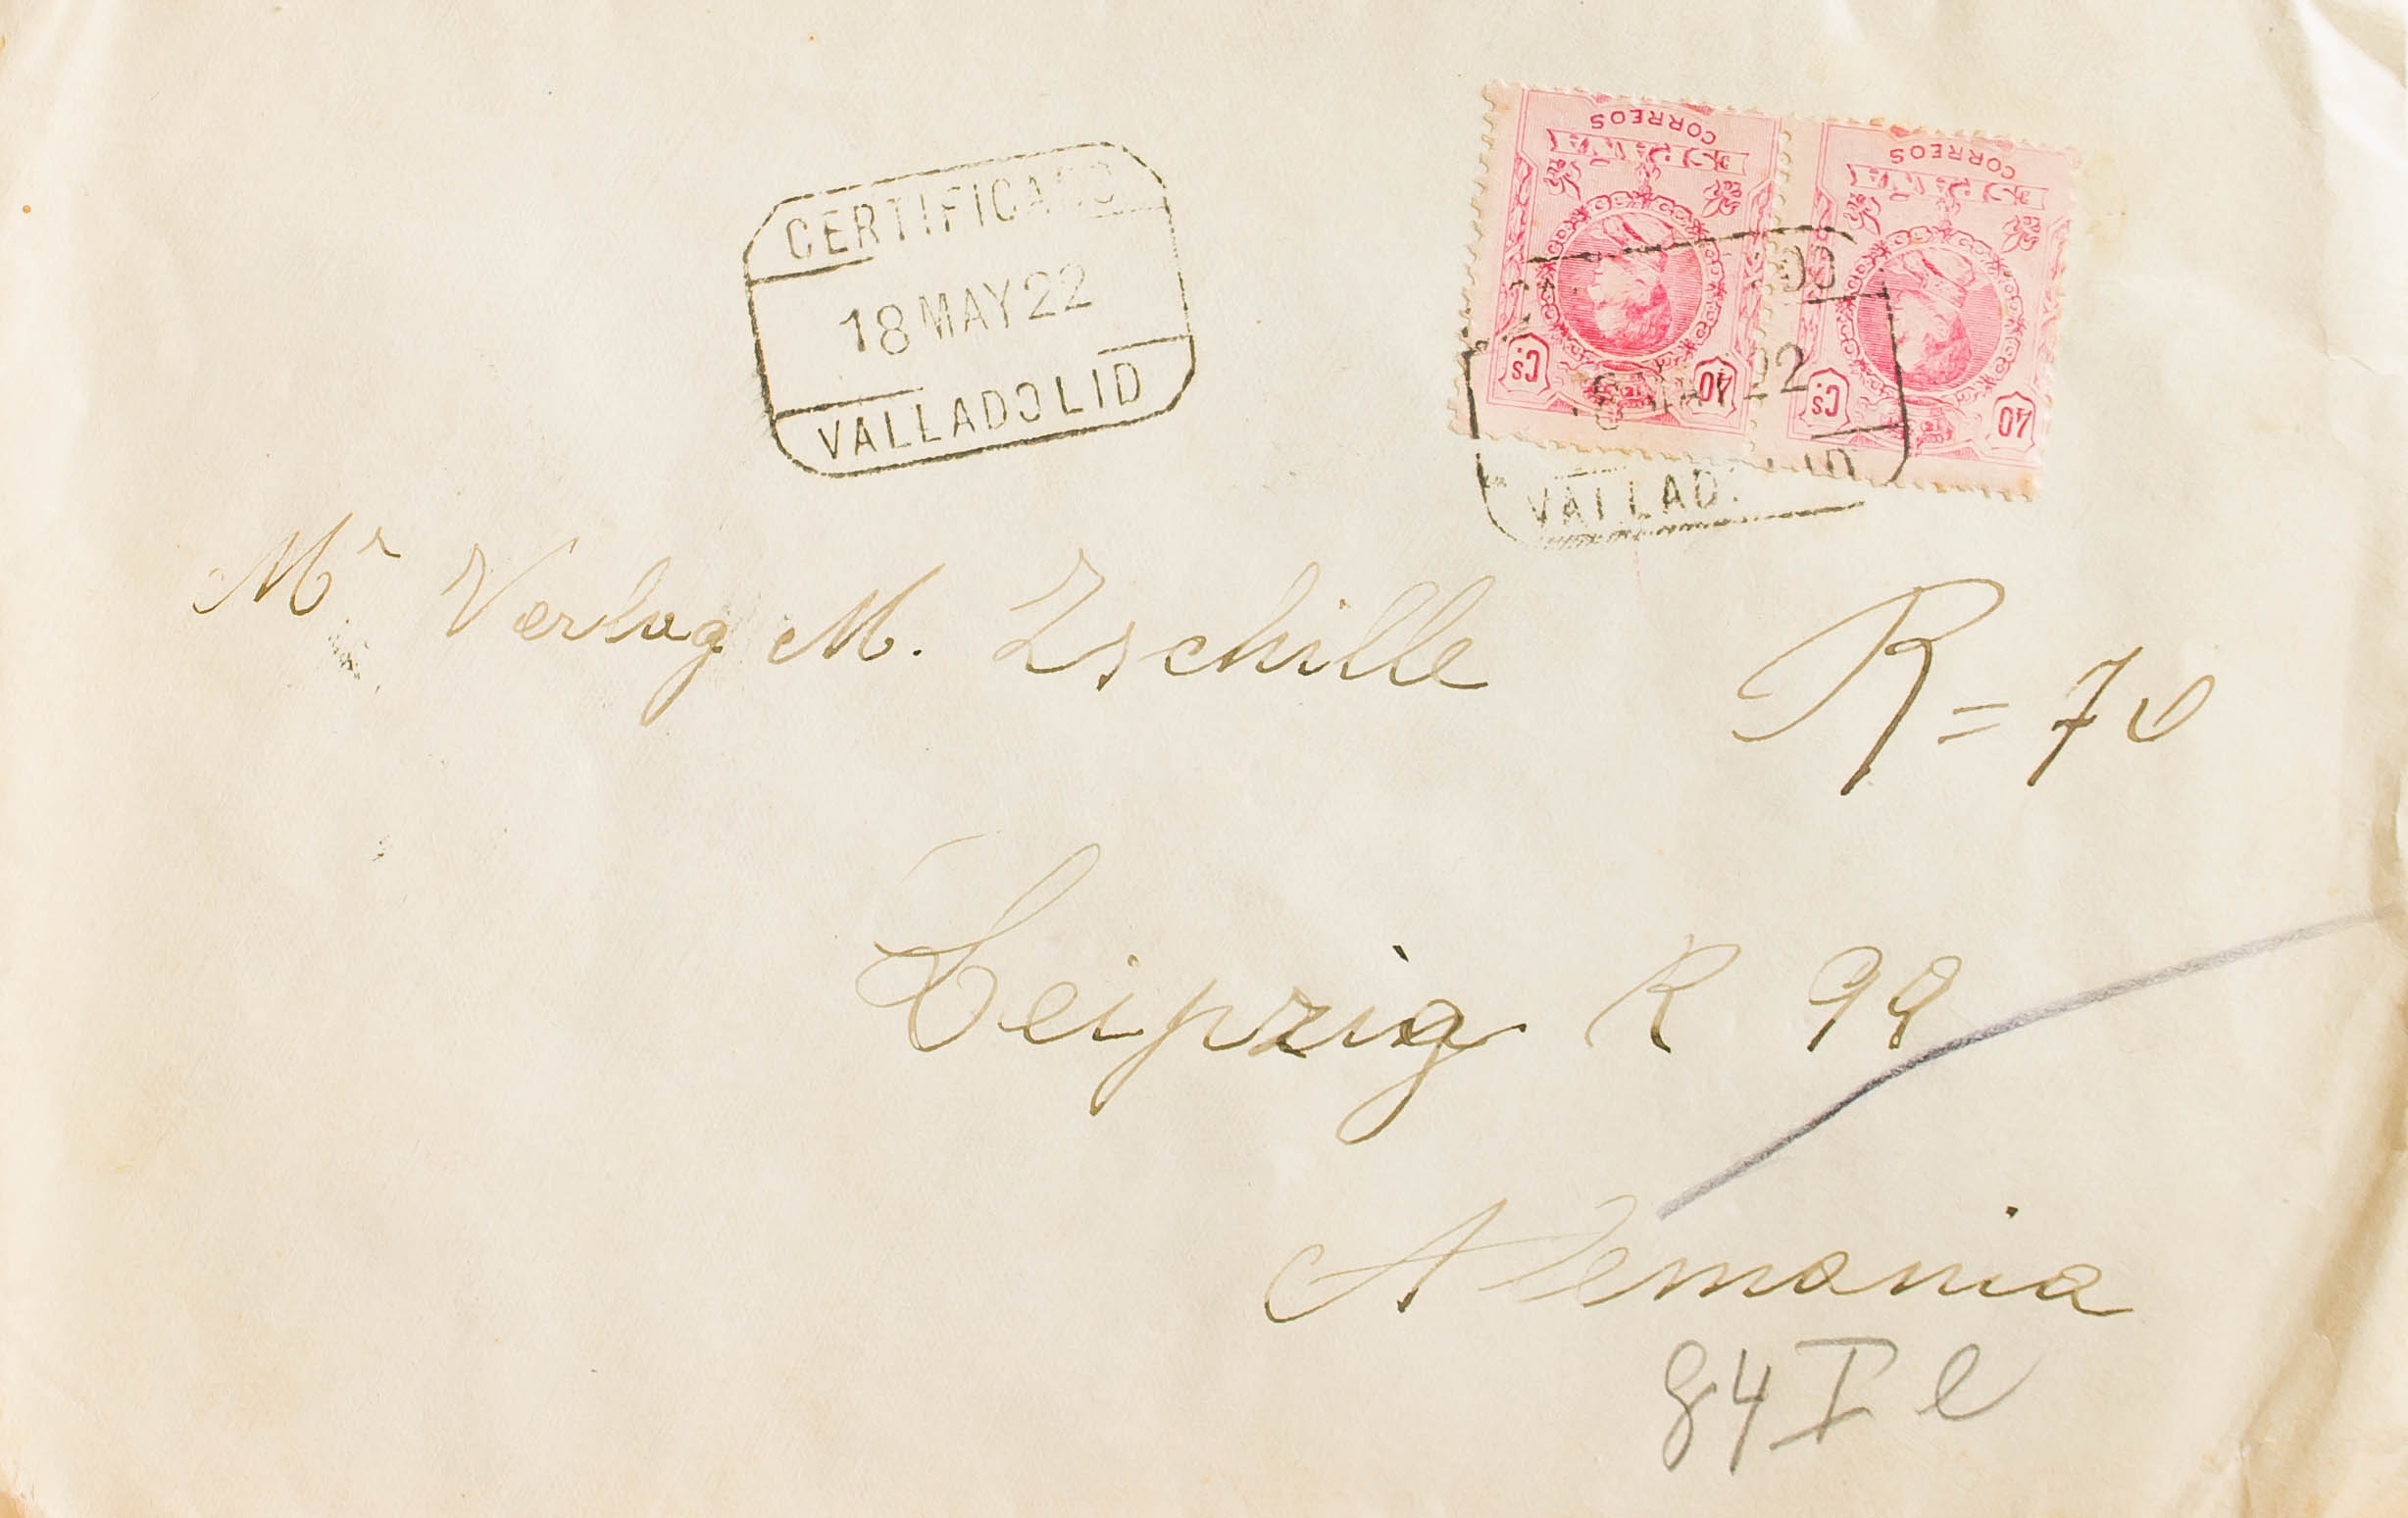 CERTIFICADO
18 MAY 22
VALLADOLID
CORREOS
ESPAÑA
40 Cs.
CORREOS
ESPAÑA
40 Cs.
22
VALLAD. ID
Mr Verlag M. Zschille
R = 70
Leipzig R 99
Alemania
84 I e